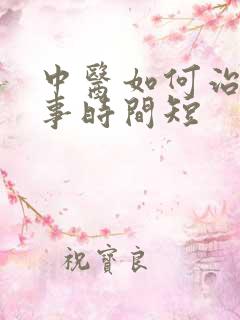 中醫如何治
事時間短
祝寶良